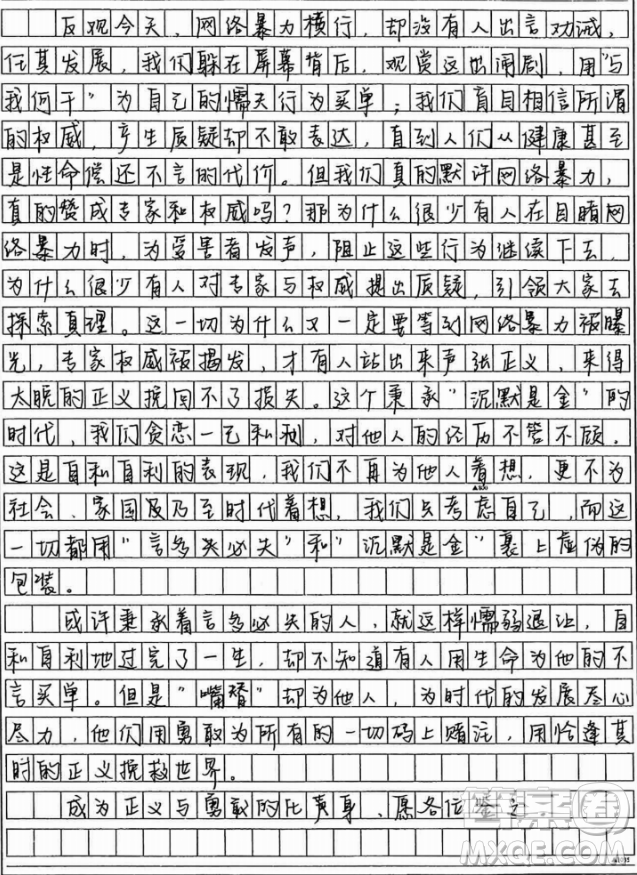 反观今天，网络暴力横行，却没有人出言劝诫，
任其发展，我们躲在屏幕背后，观赏这出闹剧，用“与
我何干”为自己的懦夫行为买单；我们盲目相信所谓
的权威，产生质疑却不敢表达，直到人们从健康甚至
是性命偿还不言的代价。但我们真的默许网络暴力，
真的赞成专家和权威吗？那为什么很少有人在目睹网
络暴力时，为受害者发声，阻止这些行为继续下去，
为什么很少有人对专家与权威提出质疑，引领大家去
探索真理。这一切为什么又一定要等到网络暴力被曝
光，专家权威被揭发，才有人站出来声张正义，来得
太晚的正义挽回不了损失。这个秉承“沉默是金”的
时代，我们贪恋一己私利，对他人的经历不管不顾，
这是自私自利的表现，我们不再为他人着想，更不为
社会、家国及乃至时代着想，我们只考虑自己，而这
一切都用“言多失必失”和“沉默是金”裹上虚伪的
包装。
或许秉承着言多必失的人，就这样懦弱退让，自
私自利地过完了一生，却不知道有人用生命为他的不
言买单。但是“嘴替”却为他人，为时代的发展尽心
尽力，他们用勇敢为所有的一切码上赌注，用恰逢其
时的正义挽救世界。
成为正义与勇敢的化身，愿各位鉴之
答案圈
MXQE.COM